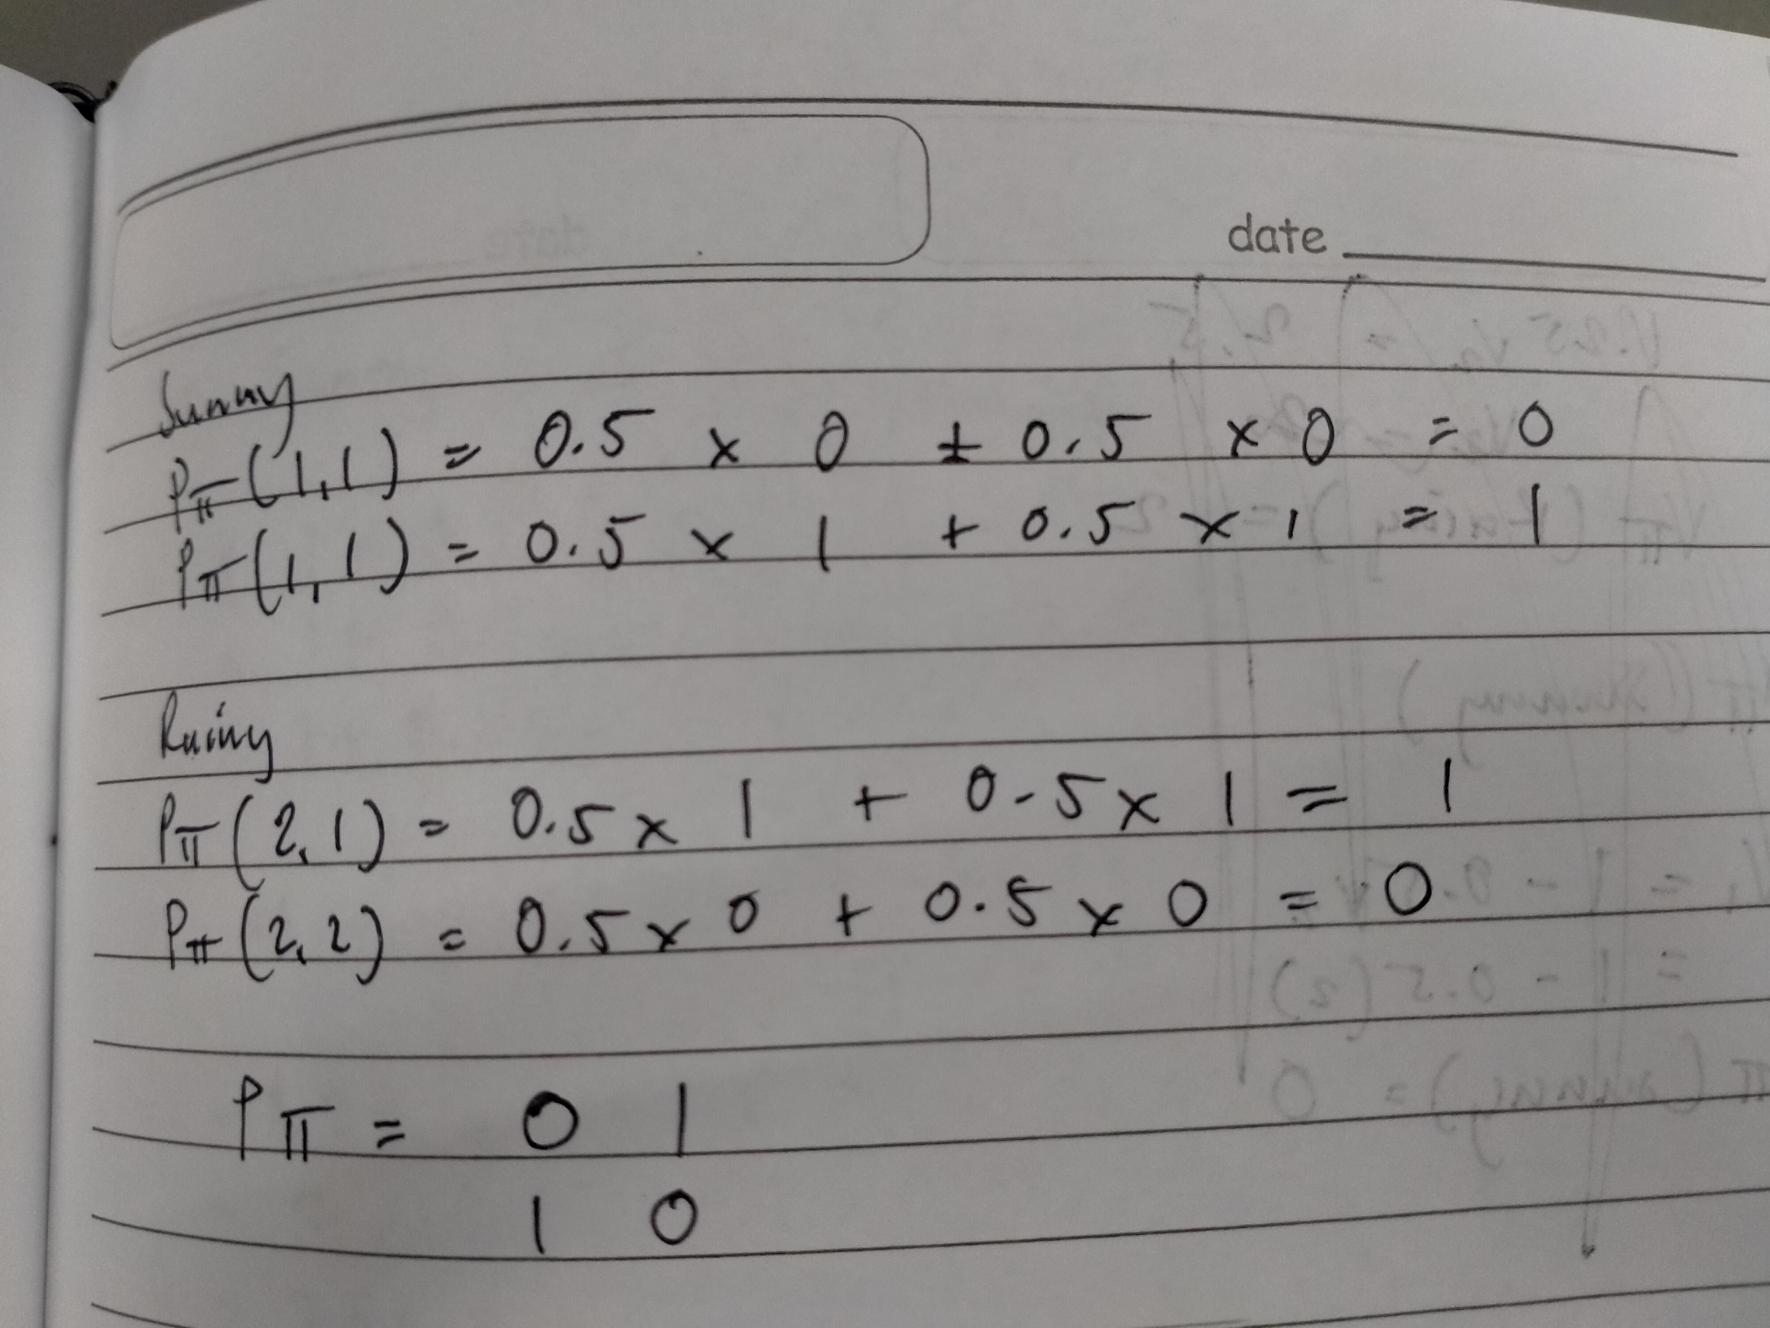 date
Sunny
Pπ(1,1) = 0.5 x 0 + 0.5 x 0 = 0
Pπ(1,1) = 0.5 x 1 + 0.5 x 1 = 1
Rainy
Pπ(2,1) = 0.5 x 1 + 0.5 x 1 = 1
Pπ(2,2) = 0.5 x 0 + 0.5 x 0 = 0
Pπ = 0 1
1 0